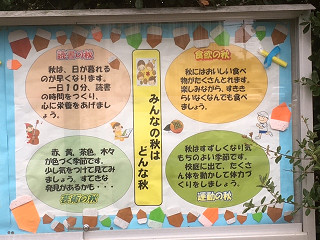 読書の秋
秋は、日が暮れる
のが早くなります。
一日10分、読書
の時間をつくり、
心に栄養をあげまし
ょう。
食欲の秋
秋にはおいしい食べ
物がたくさんとれます。
楽しみながら、すきき
らいなくなんでも食べ
ましょう。
みんなの秋は
どんな秋
赤、黄、茶色、木々
が色づく季節です。
少し気をつけて見てみ
ましょう。すてきな
発見があるかも・・・
秋はすずしくなり気
もちのよい季節です。
校庭に出て、たくさ
ん体を動かして体力づ
くりをしましょう。
運動の秋